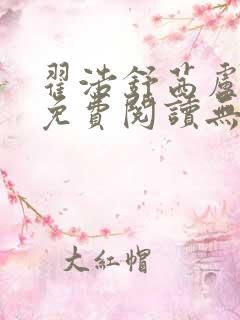 翟浩舒茜盧
免費閱讀無
大紅帽